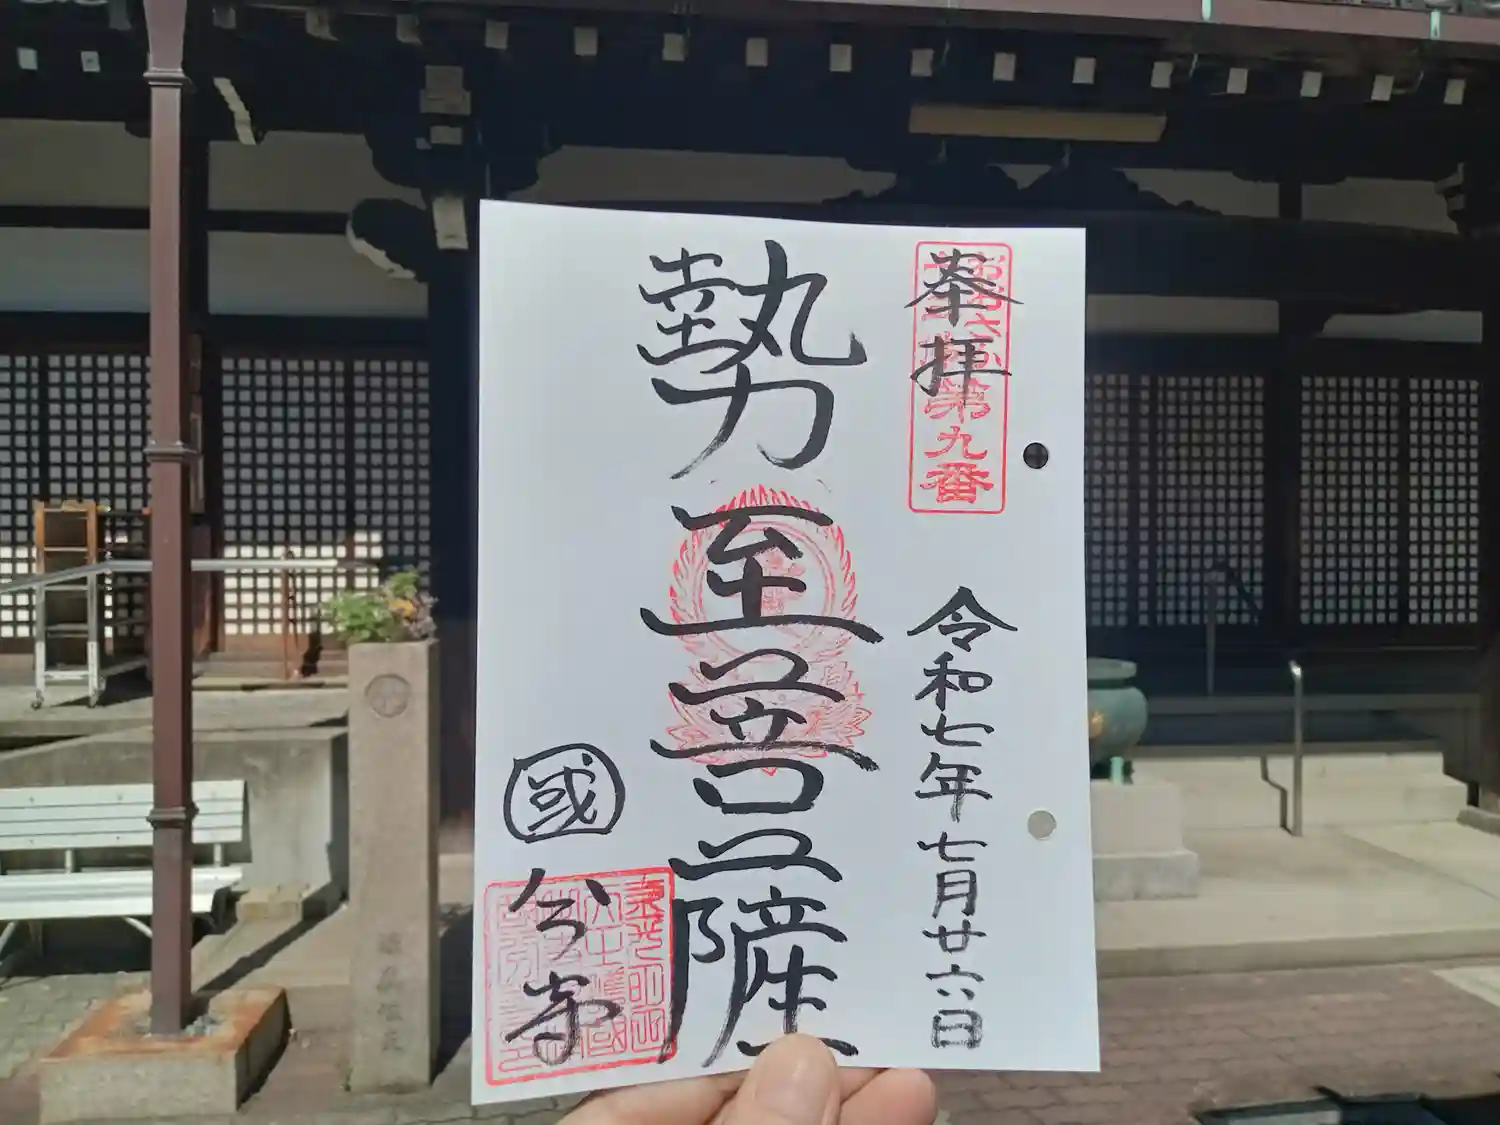 奉拝
おおさか
第九番
令和七年七月廿六日
勢至菩薩
國分寺